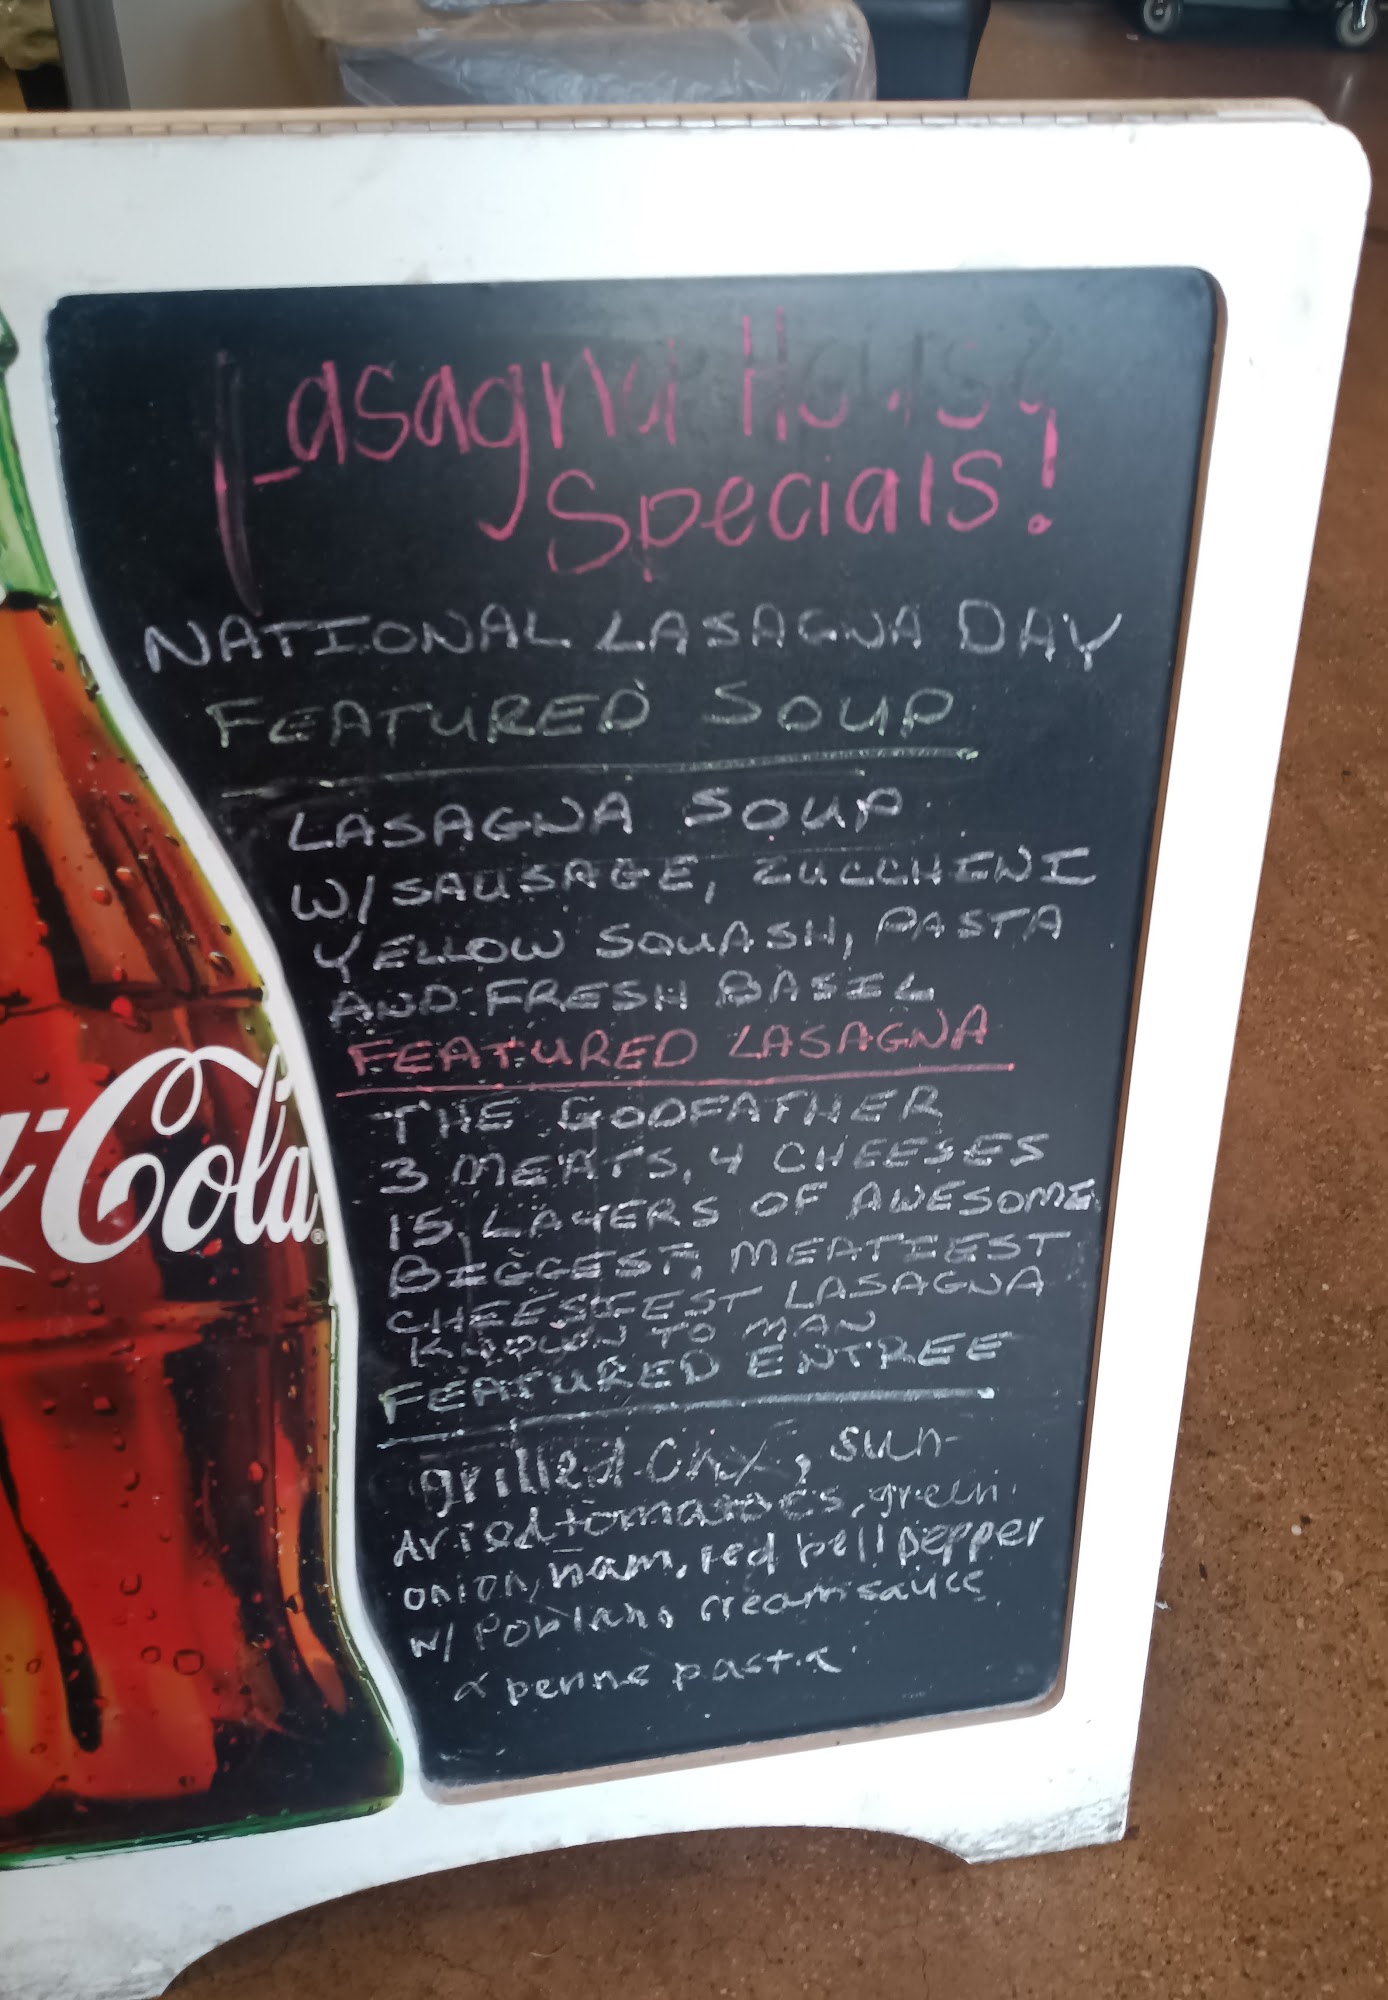 Lasagna House
Specials!
NATIONAL LASAGNA DAY
FEATURED SOUP
LASAGNA SOUP
W/ SAUSAGE, ZUCCHINI
YELLOW SQUASH, PASTA
AND FRESH BASIL
FEATURED LASAGNA
THE GODFATHER
3 MEATS, 4 CHEESES
15 LAYERS OF AWESOME
BIGGEST, MEATIEST
CHEESIEST LASAGNA
KNOWN TO MAN
FEATURED ENTREE
grilled Chx, sun-
dried tomatoes, green
onion, ham, red bell pepper
w/ Poblano cream sauce
& penne pasta
a-Cola®